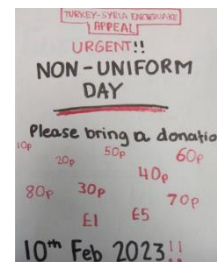 TURKEY-SYRIA EARTHQUAKE
APPEAL
URGENT!!
NON-UNIFORM
DAY
Please bring a donatio
10p
20p
50p
60p
40p
80p
30p
70p
£1
£5
10th Feb 2023!!